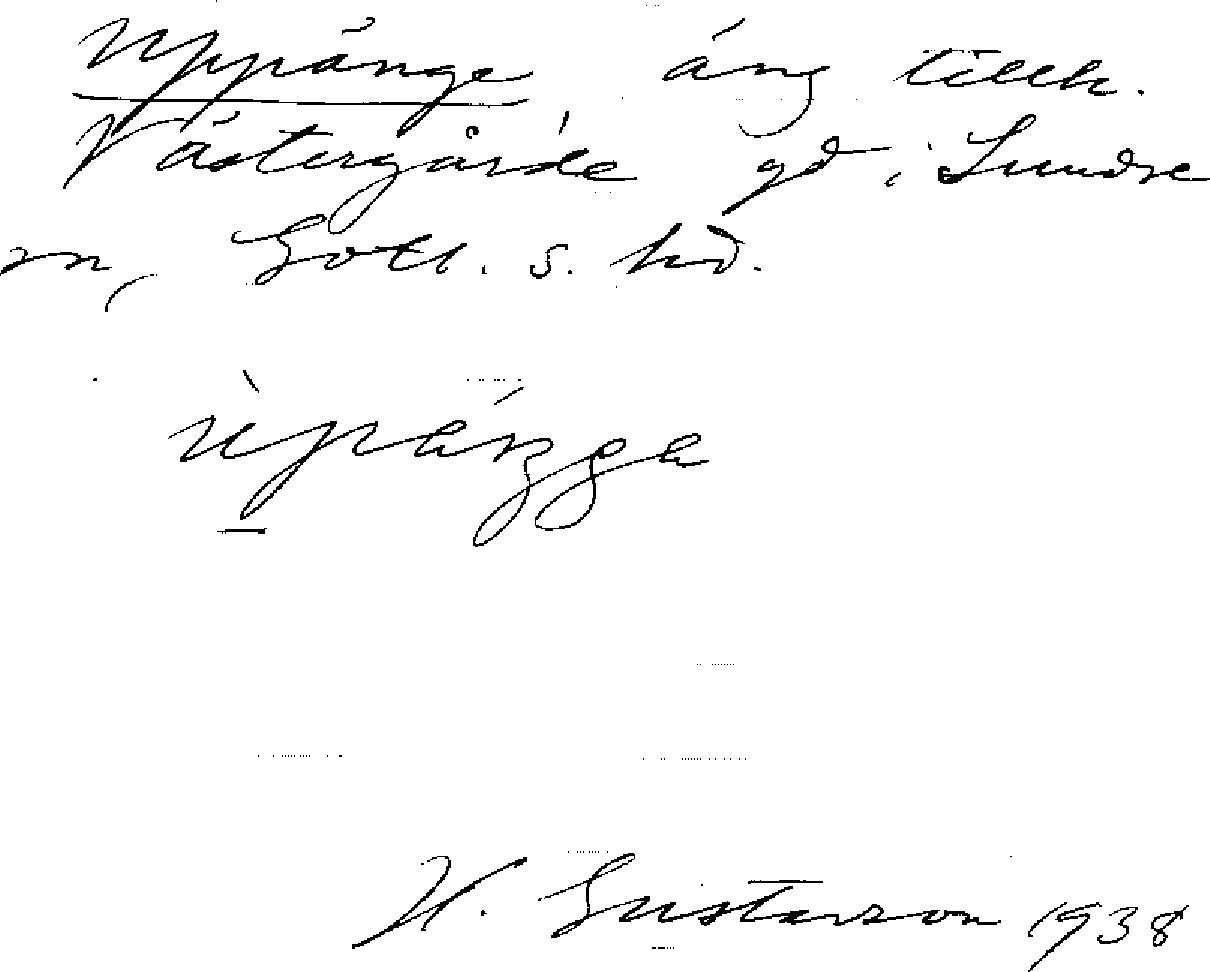 Uppänge äng tillh.
Västergårde gd i Sundre
sn, Gotl. s. hd.
H. Gustavson 1938